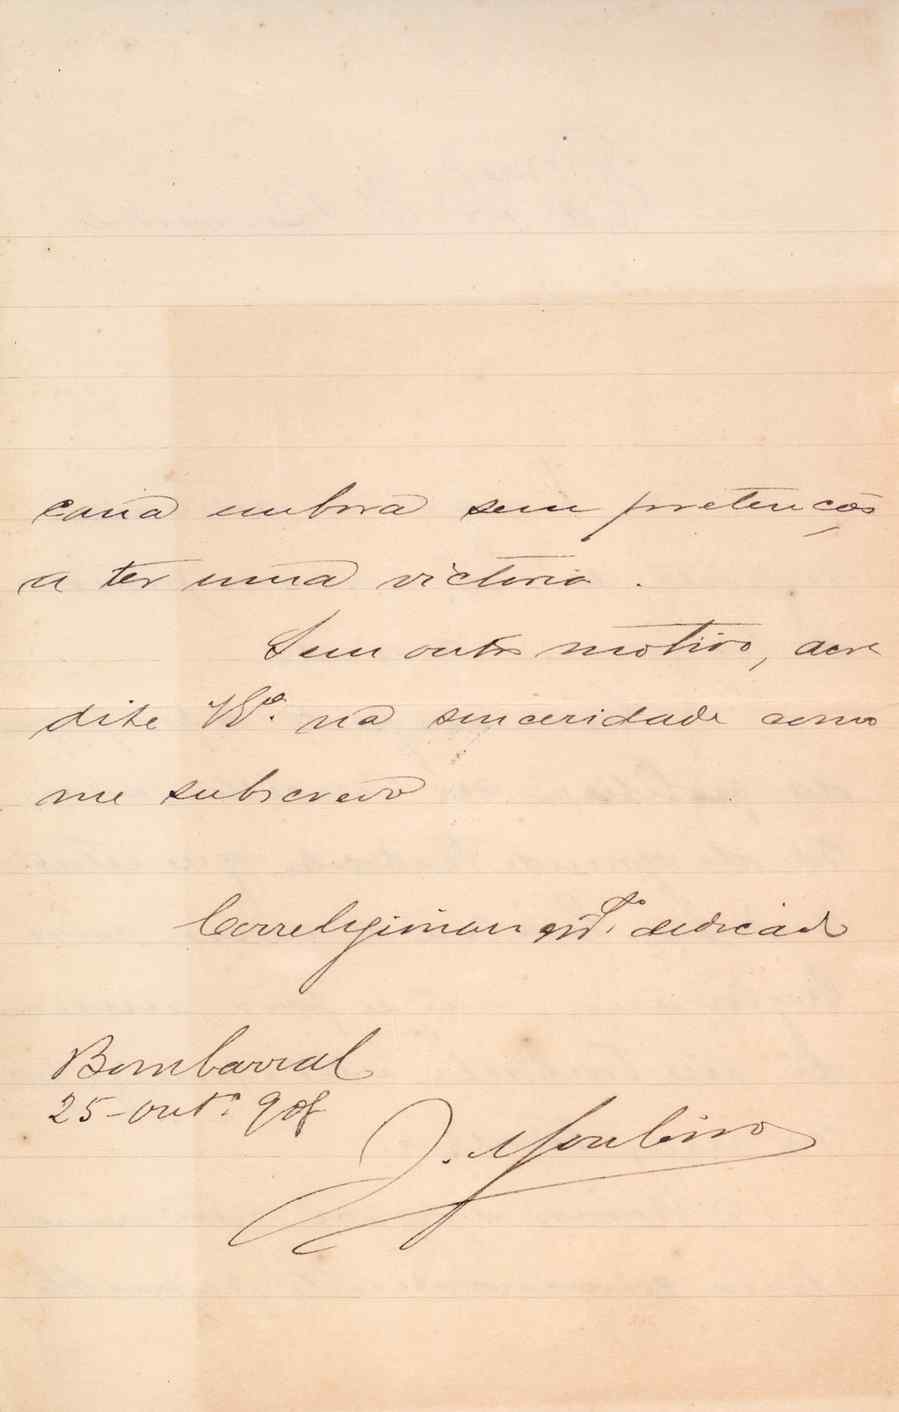 cana embora sem pretenções
a ter uma victoria.
Sem outro motivo, acre
dite VEª. na sinceridade como
me subscrevo
Correligionario mtº. dedicado
Bombarral
25-outº. 908
J.